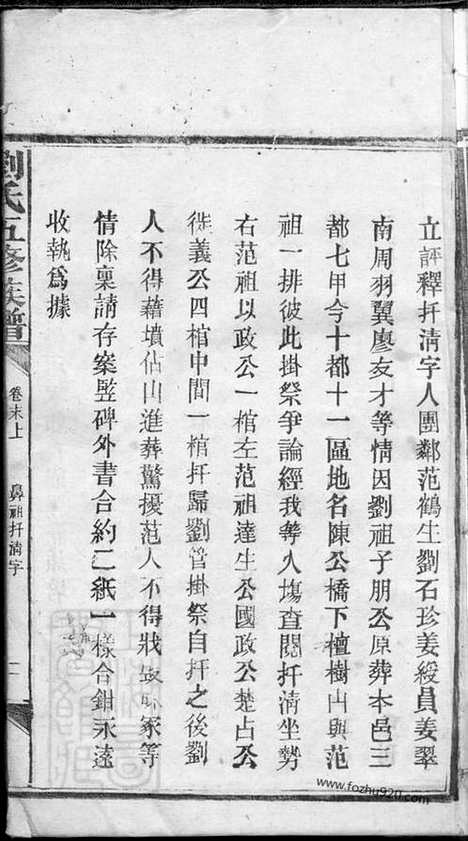 立評釋扦清字人團鄰范鶴生劉石珍姜綬員姜翠
南周羽翼廖友才等情因劉祖子朋公原葬本邑三
都七甲今十都十一區地名陳公橋下檀樹山與范
祖一排彼此掛祭爭論經我等入塲查閱扦清坐勢
右范祖以政公一棺左范祖達生公國政公楚占公
從義公四棺中間一棺扦歸劉管掛祭自扦之後劉
人不得藉墳佔山進葬驚擾范人不得戕冢等
情除稟請存案竪碑外書合約二紙一樣合鉗永遠
收執爲據
劉氏五修族譜
卷末上
鼻祖扦清字
一
www.fozhu920.com